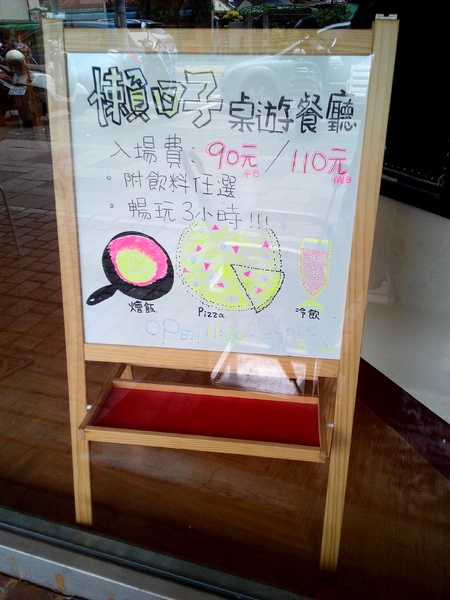 懶日子 桌遊餐廳
入場費：90元/110元
平日 假日
·附飲料任選
·暢玩3小時!!!
燴飯 Pizza 冷飲
OPEN 11:30